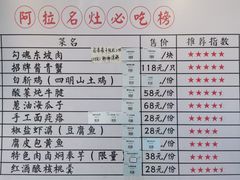 阿拉名灶必吃榜
菜名 售价 推荐指数
勾魂东坡肉 /块 ★★★★★
招牌酱青蟹 118元/只 ★★★★★
旬新鸡(四明山土鸡) /份 ★★★★★
酸菜炖牛腱 58元/份 ★★★★★
葱油海瓜子 68元/份 ★★★★★
手工面疙瘩 28元/份 ★★★★★
椒盐虾潺(豆腐鱼) 28元/份 ★★★★★
腐皮包黄鱼 /份 ★★★★★
特色肉卤焖泰芋(限量) 38元/份 ★★★★★
红酒酿核桃羹 28元/份 ★★★★★